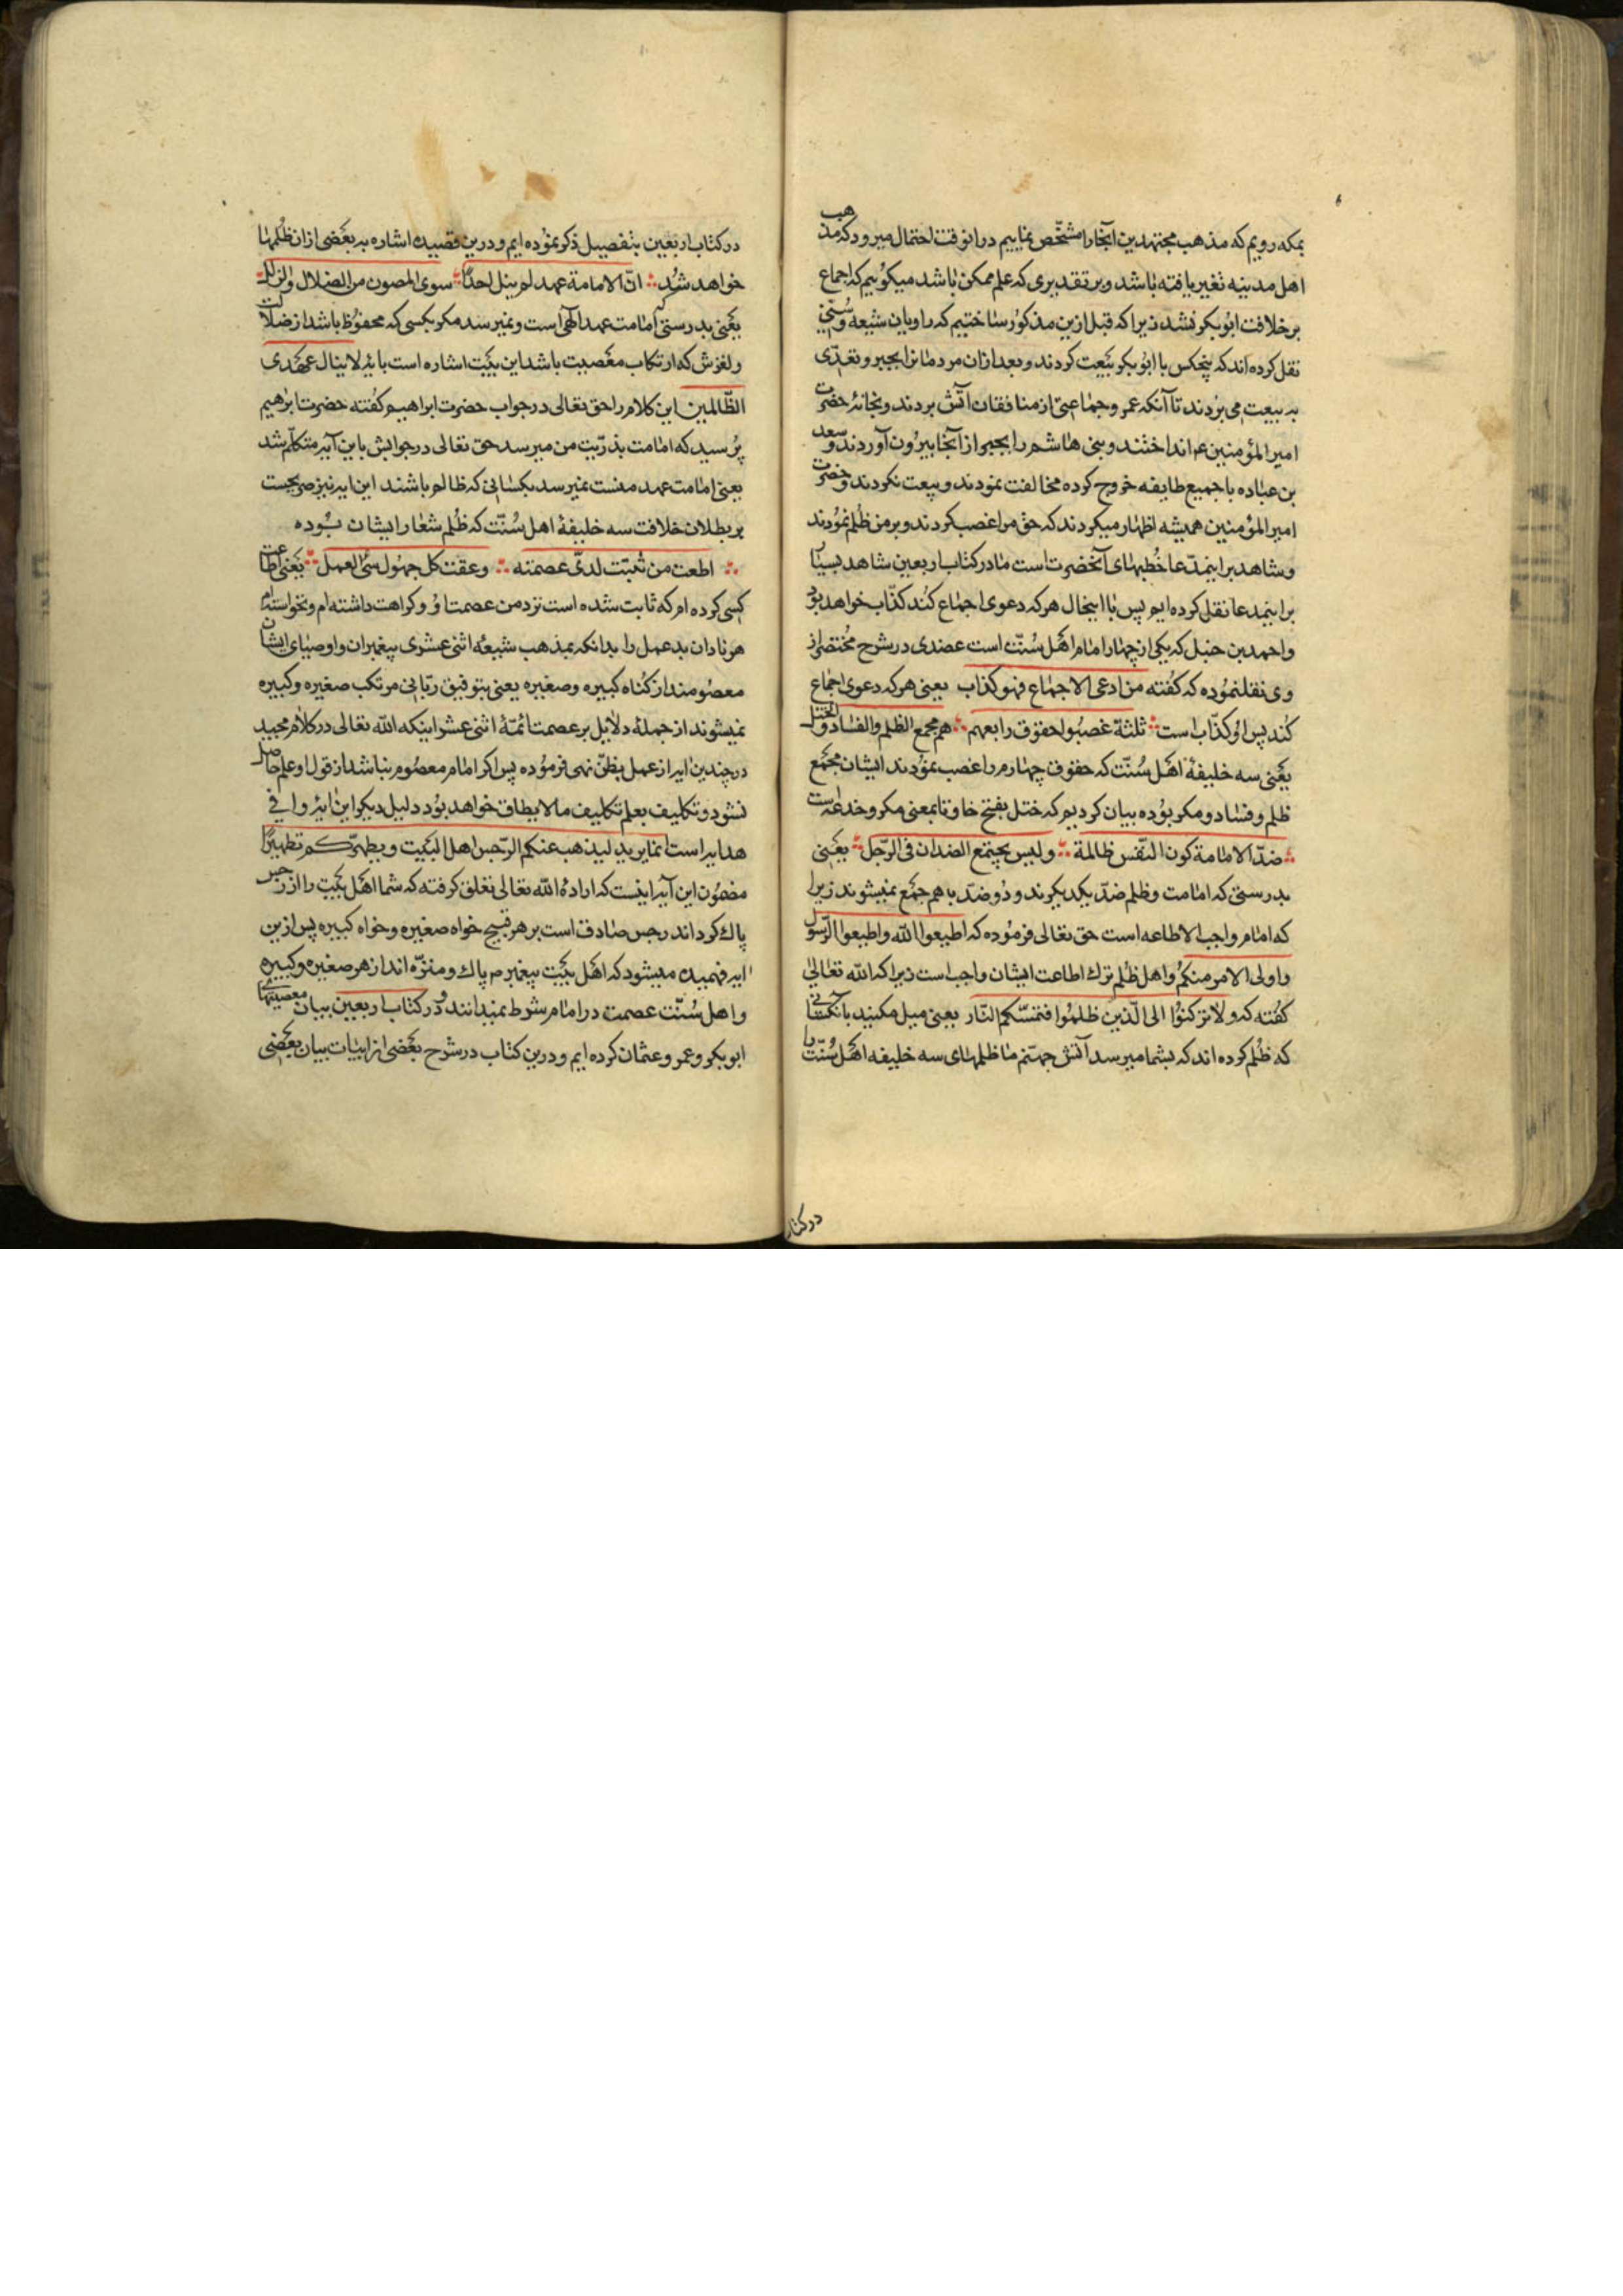 بمکه رویم که مذهب مجتهدین آنجا را مشخّص نماییم درانوقت احتمال میرود که مذهب
اهل مدینه تغیر یافته باشد و بر تقدیری که علم ممکن باشد میکوییم که اجماع
بر خلافت ابوبکر نشد زیرا که قبل ازین مذکور ساختیم که راویان شیعه و سُنّی
نقل کرده اند که پنجکس با ابوبکر بیعت کردند و بعد ازان مردمانرا بجبر و تعدّی
به بیعت می بردند تا آنکه عمر و جماعتی از منافقان آتش بردند و بخانهٔ حضرت
امیرالمؤمنین ع انداختند و بنی هاشم را بجبر از آنجا بیرون آوردند و سعد
بن عباده با جمیع طایفه خروج کرده مخالفت نمودند و بیعت نکردند و حضرت
امیرالمؤمنین همیشه اظهار میکردند که حق مرا غصب کردند و بر من ظلم نمودند
و شاهد بر اینمدّعا خُطبهای آنحضرت است ما در کتاب اربعین شاهد بسیار
بر اینمدعا نقل کرده ایم پس با اینحال هر که دعوی اجماع کند کذّاب خواهد بود
و احمد بن حنبل که یکی از چهار امام اهل سُنّت است عضدی در شرح مختصر از
وی نقل نموده که کفته من ادعی الاجماع فهو کذاب یعنی هر که دعوی اجماع
کند پس او کذّاب است ثلثة غصبوا حقوق رابعهم هم مجمع الظلم والفساد والختل
یعنی سه خلیفهٔ اهل سُنّت که حقوق چهارم را غصب نمودند ایشان مجمع
ظلم و فساد و مکر بوده بیان کردیم که ختل بفتح خا و تا بمعنی مکر و خدعه است
ضدّ الامامة کون النّفس ظالمة ولیس یجتمع الضدان فی الرّجل یعنی
بدرستی که امامت و ظلم ضدّ یکدیکرند و دو ضدّ باهم جمع نمیشوند زیرا
که امام واجب الاطاعه است حق تعالی فرموده که اطیعوا الله واطیعوا الرّسول
واولی الامر منکم و اهل ظلم ترک اطاعت ایشان واجب است زیرا که الله تعالی
کفته که ولا ترکنوا الی الّذین ظلموا فتمسّکم النّار یعنی میل مکنید بانکسانی
که ظلم کرده اند که بشما میرسد آتش جهنّم ما ظلمهای سه خلیفه اهل سُنّت را
در کتاب
در کتاب اربعین بتفصیل ذکر نموده ایم و درین قصیده اشاره به بعضی ازان ظلمها
خواهد شد انّ الامامة عهد لم ینل احدًا سوی المصون من الضلال والزلل
یعنی بدرستی که امامت عهد الهی است و نمیرسد مکر بکسی که محفوظ باشد از ضلالت
و لغزش که ارتکاب معصیت باشد این بیت اشاره است بایهٔ لا ینال عهدی
الظّالمین این کلام را حق تعالی در جواب حضرت ابراهیم کفته حضرت ابرهیم
پرسید که امامت بذرّیت من میرسد حق تعالی در جوابش باین آیه متکلّم شد
یعنی امامت عهد منست نمیرسد بکسانی که ظالم باشند این ایه نیز صریحست
بر بطلان خلافت سه خلیفهٔ اهل سُنّت که ظلم شعار ایشان بوده
اطعت من ثبتت لدیّ عصمته وعفت کل جهول سیّ العمل یعنی اطاعت
کسی کرده ام که ثابت شده است نزد من عصمت او و کراهت داشته ام و نخواسته ام
هر نادان بد عمل را بدانکه بمذهب شیعهٔ اثنی عشری پیغمبران و اوصیای ایشان
معصومند از کناه کبیره و صغیره یعنی بتوفیق ربّانی مرتکب صغیره و کبیره
نمیشوند از جملهٔ دلایل بر عصمت ائمّهٔ اثنی عشر اینکه الله تعالی در کلام مجید
در چندین ایه از عمل بظنّ نهی فرموده پس اکر امام معصوم نباشد از قول او علم حاصل
نشود و تکلیف بعلم تکلیف ما لا یطاق خواهد بود دلیل دیکر این ایهٔ وافی
هدایه است انما یرید لیذهب عنکم الرّجس اهل البیت ویطهّرکم تطهیرًا
مضمون این آیه اینست که ارادهٔ الله تعالی تعلق کرفته که شما اهل بیت را از رجس
پاک کرداند رجس صادق است بر هر قبیح خواه صغیره و خواه کبیره پس ازین
ایه فهمیده میشود که اهل بیت پیغمبر ص پاک و منزّه اند از هر صغیره و کبیره
و اهل سُنّت عصمت در امام شرط نمیدانند و در کتاب اربعین بیان معصیتهای
ابوبکر و عمر و عثمان کرده ایم و درین کتاب در شرح بعضی از ابیات بیان بعضی